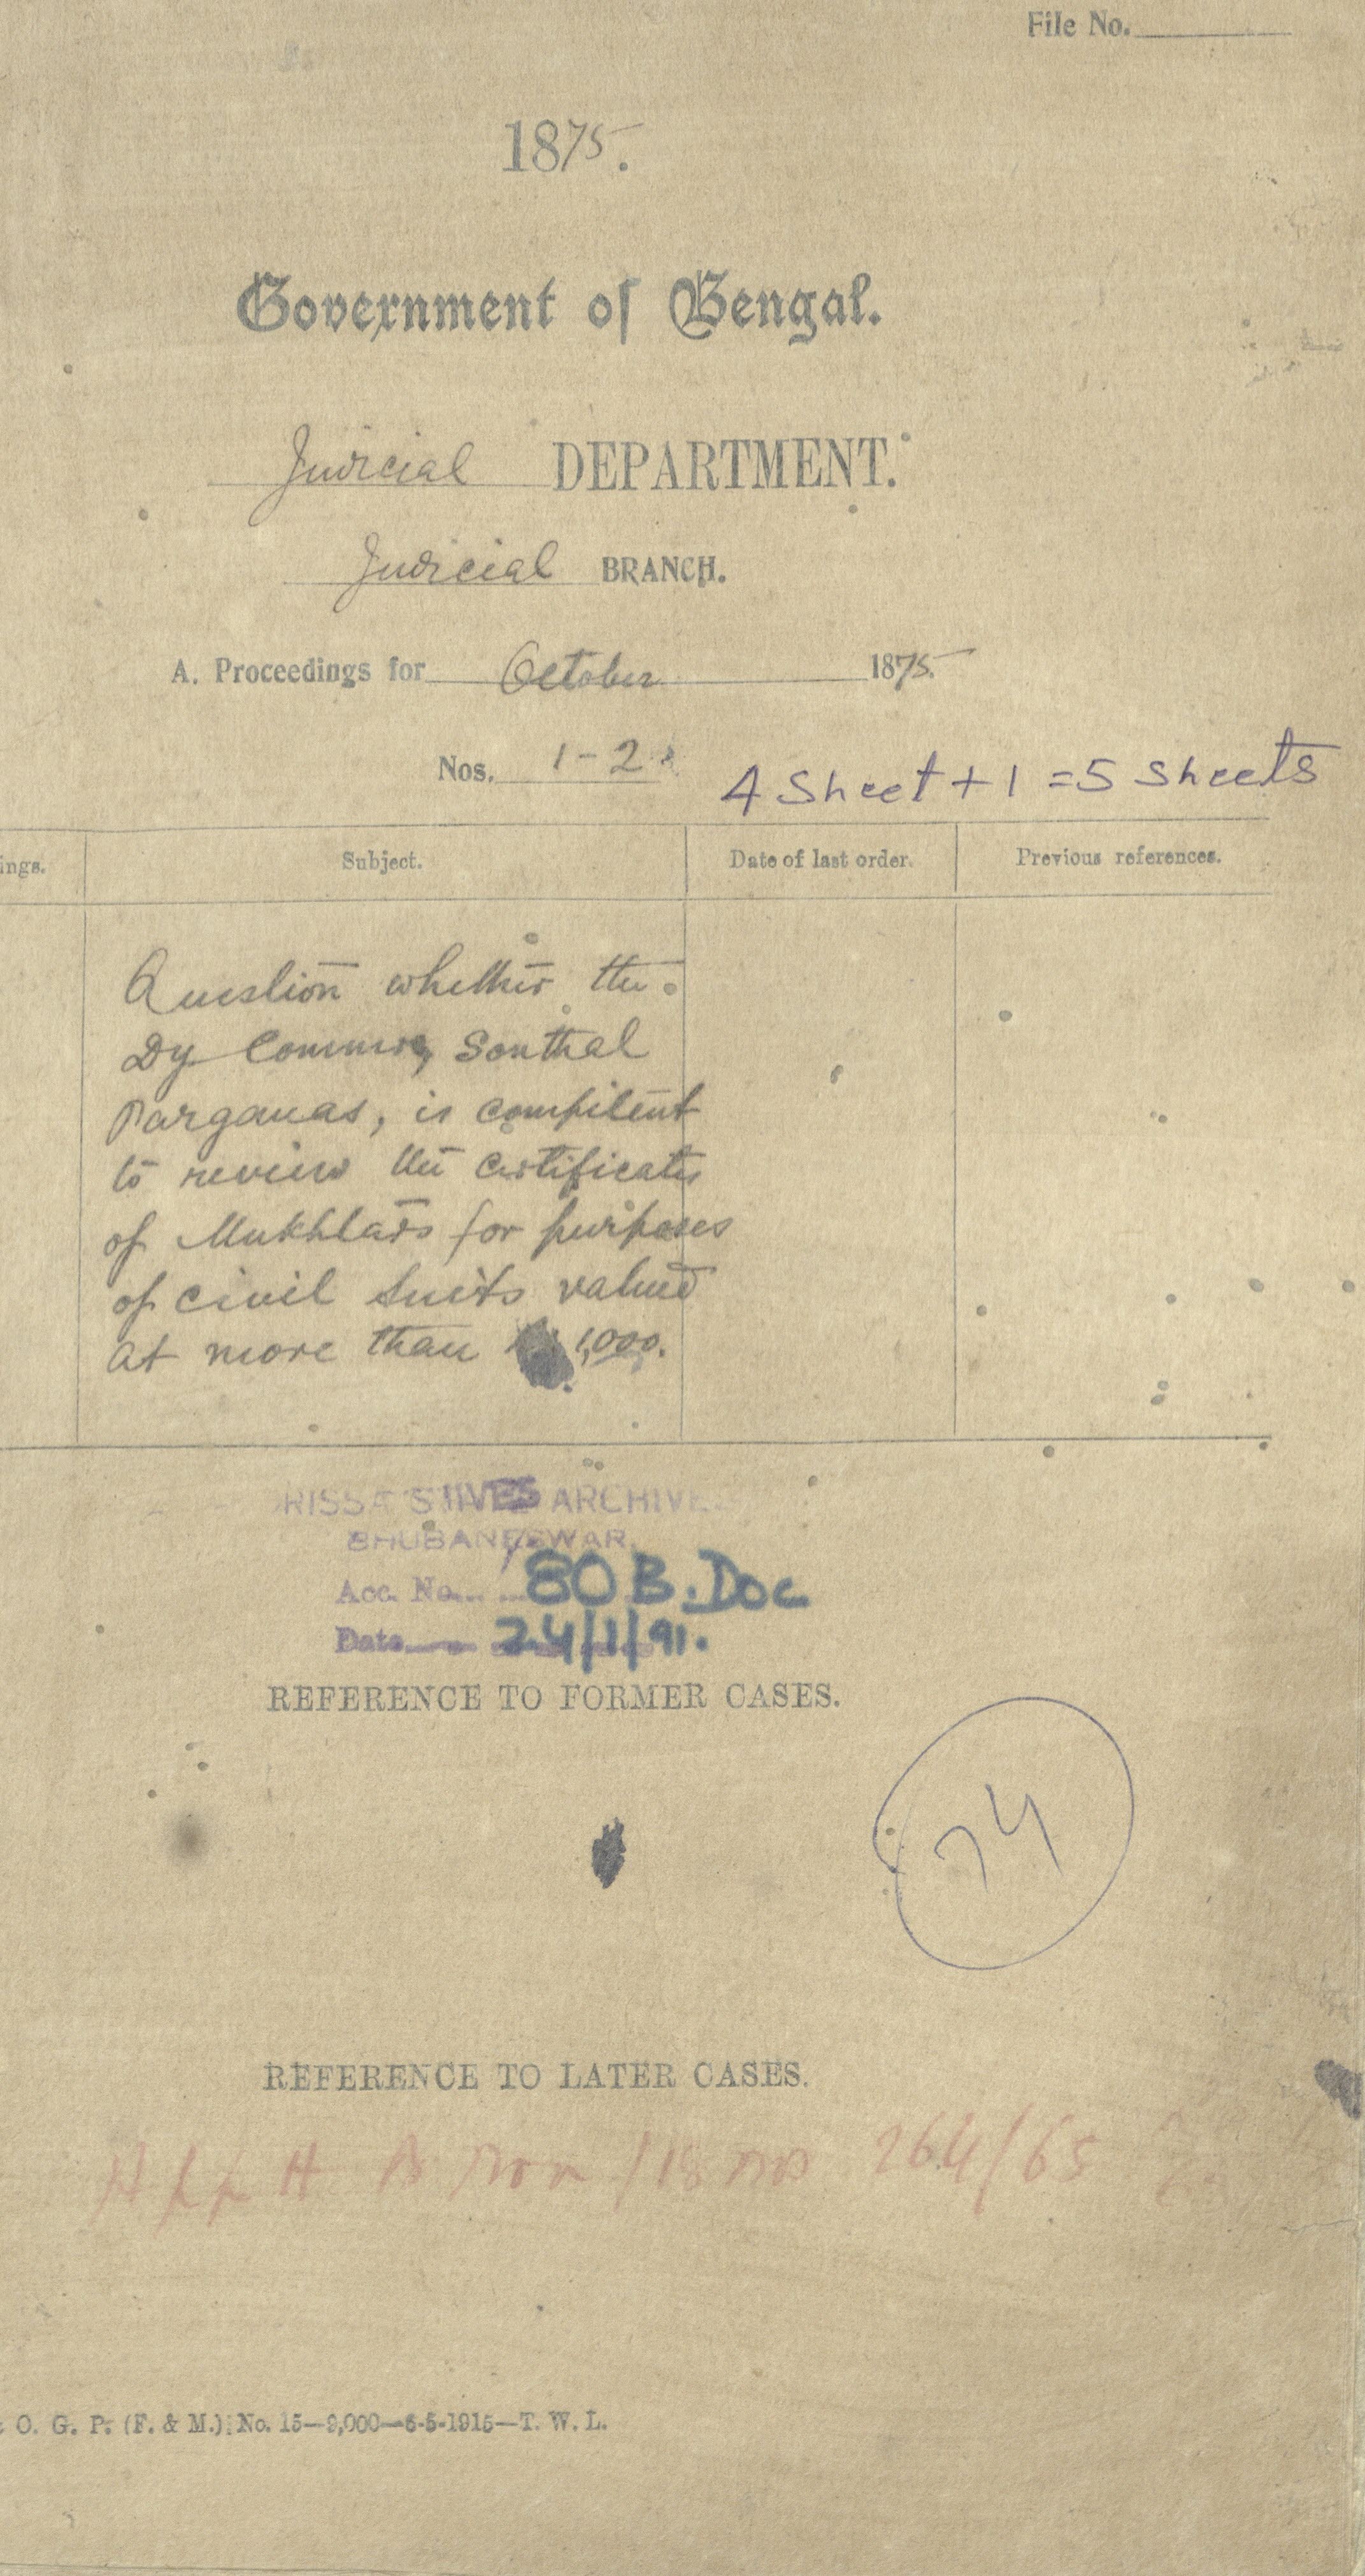 File No.
1875.
Government of Bengal.
Judicial DEPARTMENT.
Judicial BRANCH.
A. Proceedings for October 1875.
Nos. 1-2
4 Sheet + 1 = 5 Sheets
ings. Subject. Date of last order. Previous references.
Question whether the
Dy Commr, Sonthal
Parganas, is competent
to review the certificates
of Mukhtars for purposes
of civil suits valued
at more than 1,000.
RISSA ARCHIVE
BHUBANESWAR.
Acc. No. 80 B. Doc
Date 24/1/91.
REFERENCE TO FORMER CASES.
74
REFERENCE TO LATER CASES.
264/65
O. G. P. (F. & M.) No. 15—9,000—6-5-1915—T. W. L.